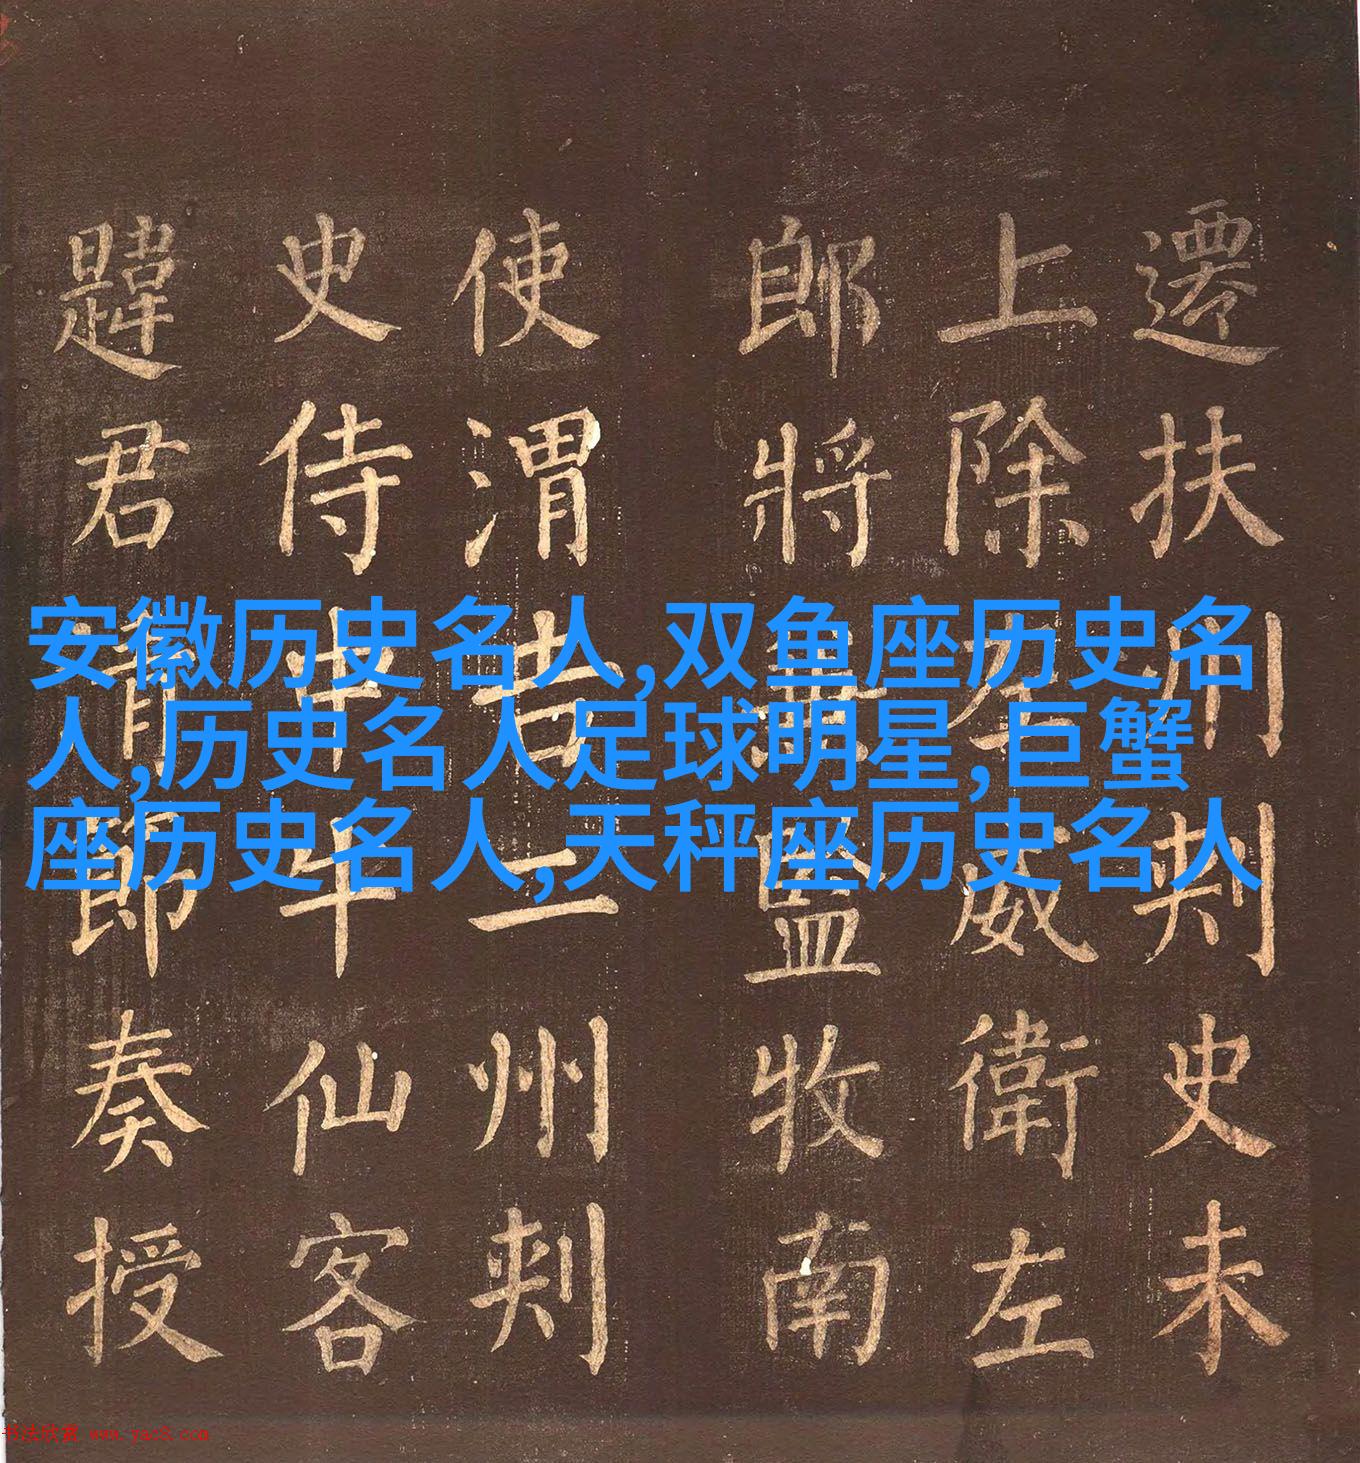 安徽历史名人,双鱼座历史名
人,历史名人足球明星,巨蟹
座历史名人,天秤座历史名人
遷扶州刾史未
上除左威衛左
郎將監牧南
使渭吉二州刾
史侍中牛仙客
韙君清節奏授
书法欣赏 www.yac8.com